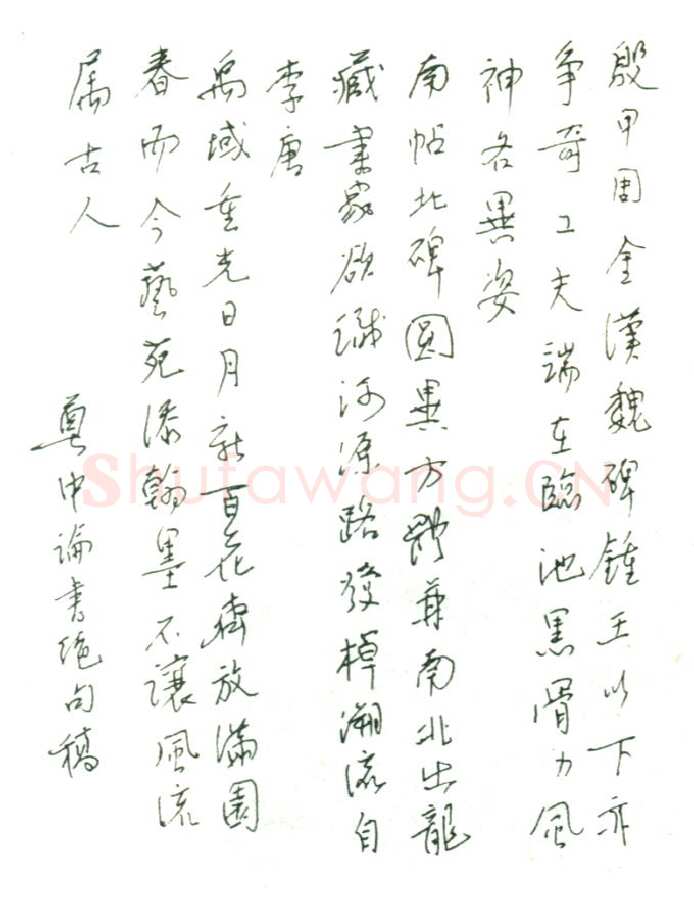 殷甲周金漢魏碑鍾王以下亦
争奇工夫端在臨池黑骨力風
神各異姿
南帖北碑圓異方 兼南北出龍
藏書家欲識河源路發棹溯流自
李唐
禹域重光日月新百花齊放滿園
春而今藝苑添翰墨不讓風流
屬古人
尹中論書絶句稿
Shufawang.CN